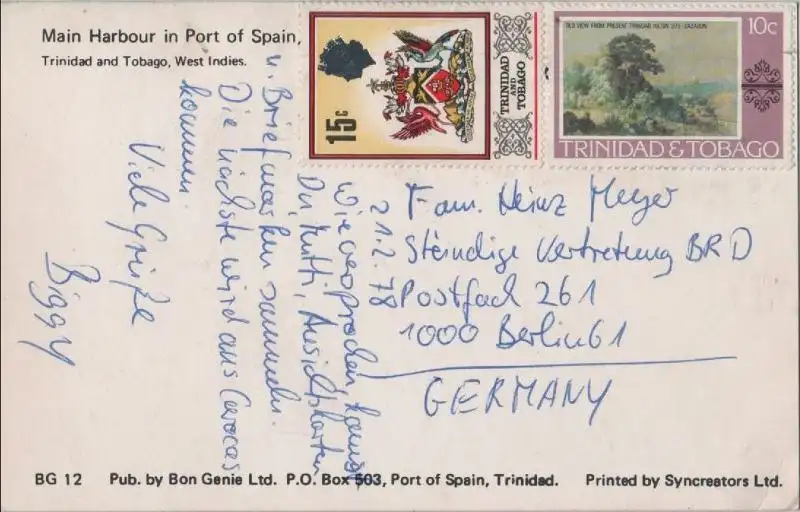 Main Harbour in Port of Spain,
Trinidad and Tobago, West Indies.
15c
TRINIDAD
AND
TOBAGO
OLD VIEW FROM PRESENT TRINIDAD HILTON SITE - CAZABON
10c
TRINIDAD & TOBAGO
21.2.78
Wie versprochen kannst
Du, Mutti, Ansichtskarten
u. Briefmarken sammeln.
Die nächste wird aus Caracas
kommen.
Viele Grüße
Biggy
Fam. Heinz Meyer
Ständige Vertretung BRD
Postfach 261
1000 Berlin 61
GERMANY
BG 12 Pub. by Bon Genie Ltd. P.O. Box 503, Port of Spain, Trinidad. Printed by Syncreators Ltd.